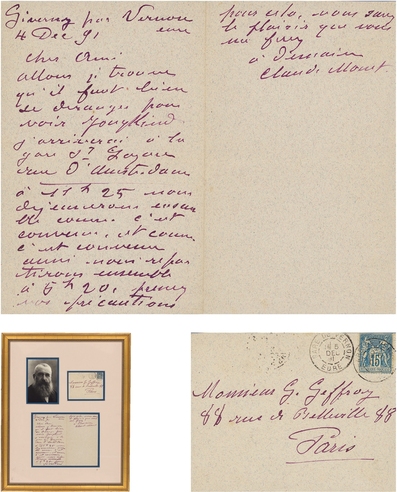 Giverny par Vernon
eure
4 Dec 91
Cher Ami
allons je trouve
qu'il faut bien
se deranger pour
voir Jongkind
j'arriverai à la
gare St Lazare
rue d'Amsterdam
à 11h 25 nous
dejeunerons ensem
ble comme c'est
convenu, et comme
c'est convenu
aussi nous repar
tirons ensemble
à 5h 20, prenez
vos précautions
pour cela, vous savez
le plaisir que vous
me ferez
à demain
Claude Monet
GARE DE VERNON
5
DEC
91
EURE
15
Monsieur G. Geffroy
88 rue de Belleville 88
Paris